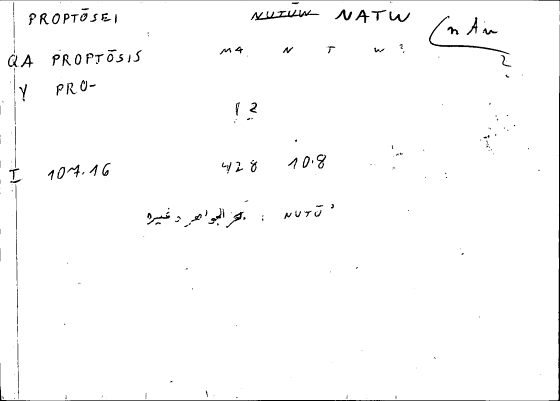 PROPTŌSEI NUTŪW NATW (nAn
QA PROPTŌSIS MA N T W ?
Y PRO-
12
I 107.16 428 10.8
بحر الجواهر وغيره : NUTŪ'